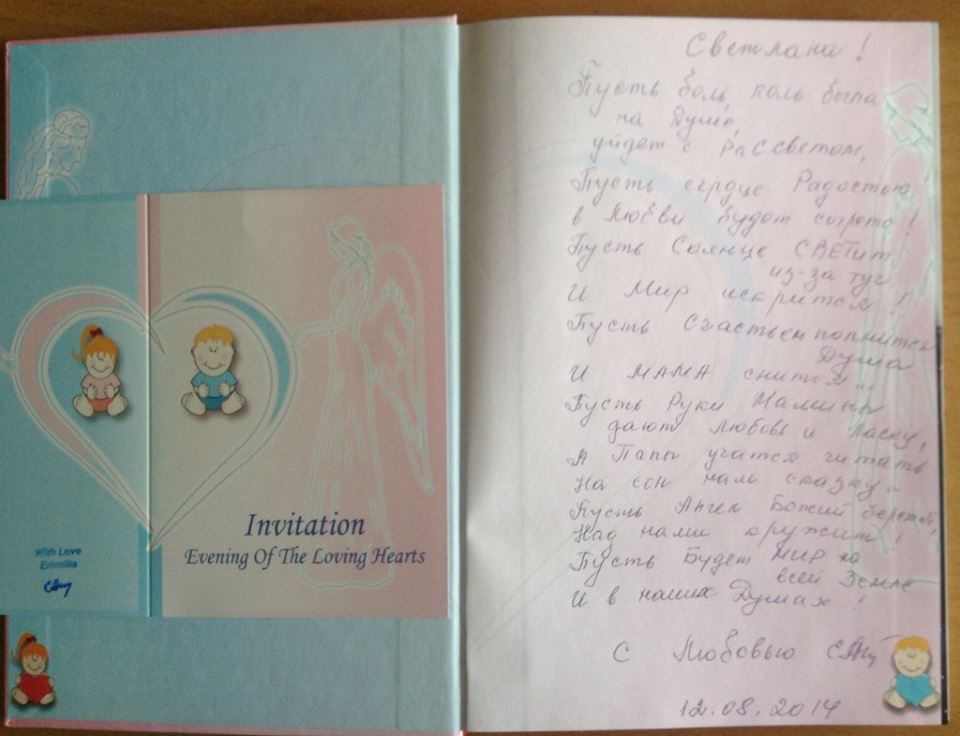 With Love
Emmilia
Invitation
Evening Of The Loving Hearts
Светлана!
Пусть боль, коль была
на Душе,
уйдет с РаССветом,
Пусть сердце Радостью
в Любви будет согрето!
Пусть Солнце СВЕТит
из-за туч
И Мир искрится!
Пусть Счастьем полнится
Душа
И МАМА снится...
Пусть Руки Мамины
дают любовь и ласку,
А Папы учатся читать
На сон нам сказку..
Пусть Ангел Божий бережно
Над нами кружит!
Пусть Будет Мир на
всей Земле
И в наших Душах!
С Любовью
12.08.2014